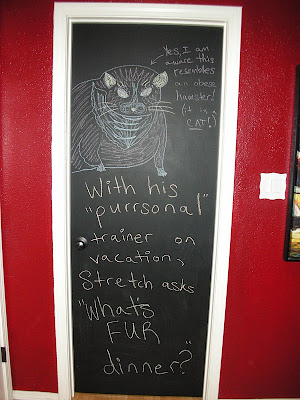 Yes, I am
aware this
resembles
an obese
hamster!
(it is a
CAT!)
With his
"purrsonal"
trainer on
vacation,
Stretch asks
"What's
FUR
dinner?"